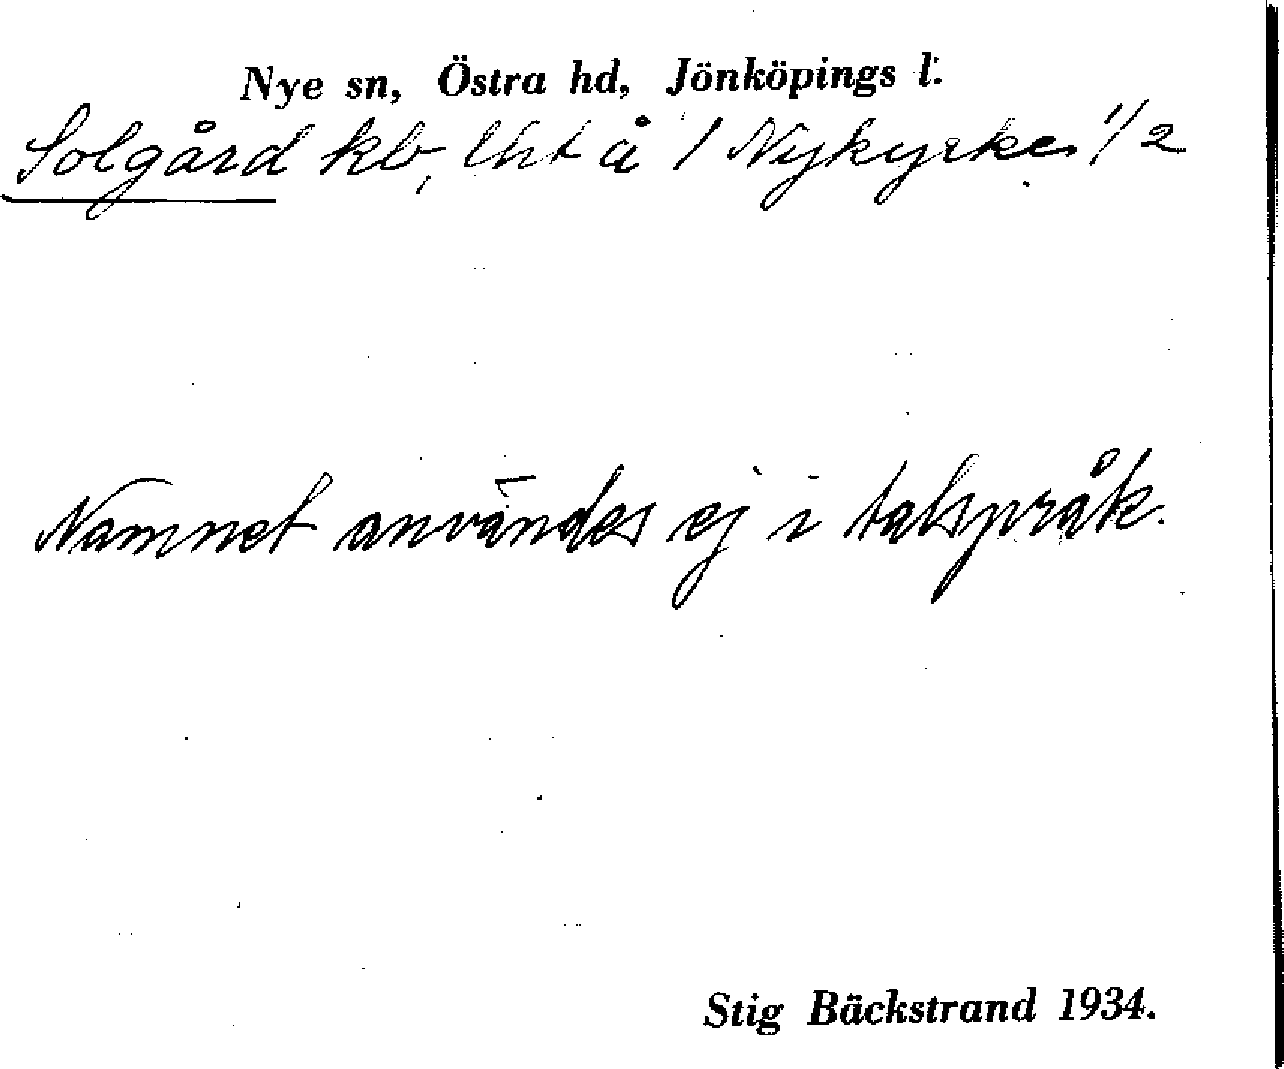 Nye sn, Östra hd, Jönköpings l.
Solgård kb, lht å 1 Nykyrke 1/2
Namnet användes ej i talspråk.
Stig Bäckstrand 1934.